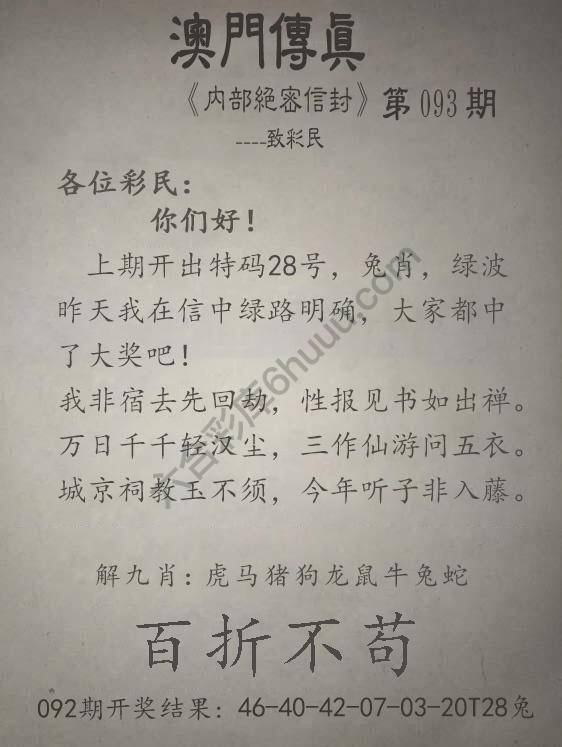 澳門傳真
《内部絕密信封》第093期
----致彩民
各位彩民：
你们好！
上期开出特码28号，兔肖，绿波
昨天我在信中绿路明确，大家都中
了大奖吧！
我非宿去先回劫，性报见书如出禅。
万日千千轻汉尘，三作仙游问五衣。
城京祠教玉不须，今年听子非入藤。
解九肖：虎马猪狗龙鼠牛兔蛇
百折不苟
092期开奖结果：46-40-42-07-03-20T28兔
六合彩库6huuu.com